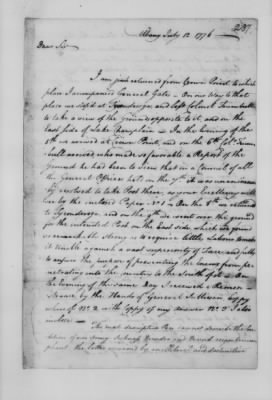 237
Albany July 12 1776
Dear Sir
I am just returned from Crown Point to which
place I accompanied General Gates - On our way to that
place we stop'd at Tyonderoga and left Colonel Trumbull
to take a view of the Ground opposite to it, and on the
East side of Lake Champlain - In the Evening of the
5th we arrived at Crown Point, and on the 6th Col: Trum-
bull arrived who made so favorable a Report of the
Ground he had been to view that in a Council of all
the General Officers held on the 7th it was unanimous-
ly resolved to take Post there, as your Excellency will
see by the inclosed Paper No 1 - On the 8th we returned
to Tyonderoga and on the 9th we went over the ground
for the intended Post on the East side which is
so strong as to require little Labour to make
it tenable against a vast superiority of Force and fully
to answer the purpose of preventing the Enemy from pe-
netrating into the Country to the South of it - In
the Evening of the same Day I received a Remon-
strance by the Hands of General Sullivan Coppy
whereof No 2 with Coppy of my answer No 3 I also
inclose -
The most descriptive Pen cannot describe the Con-
dition of our Army